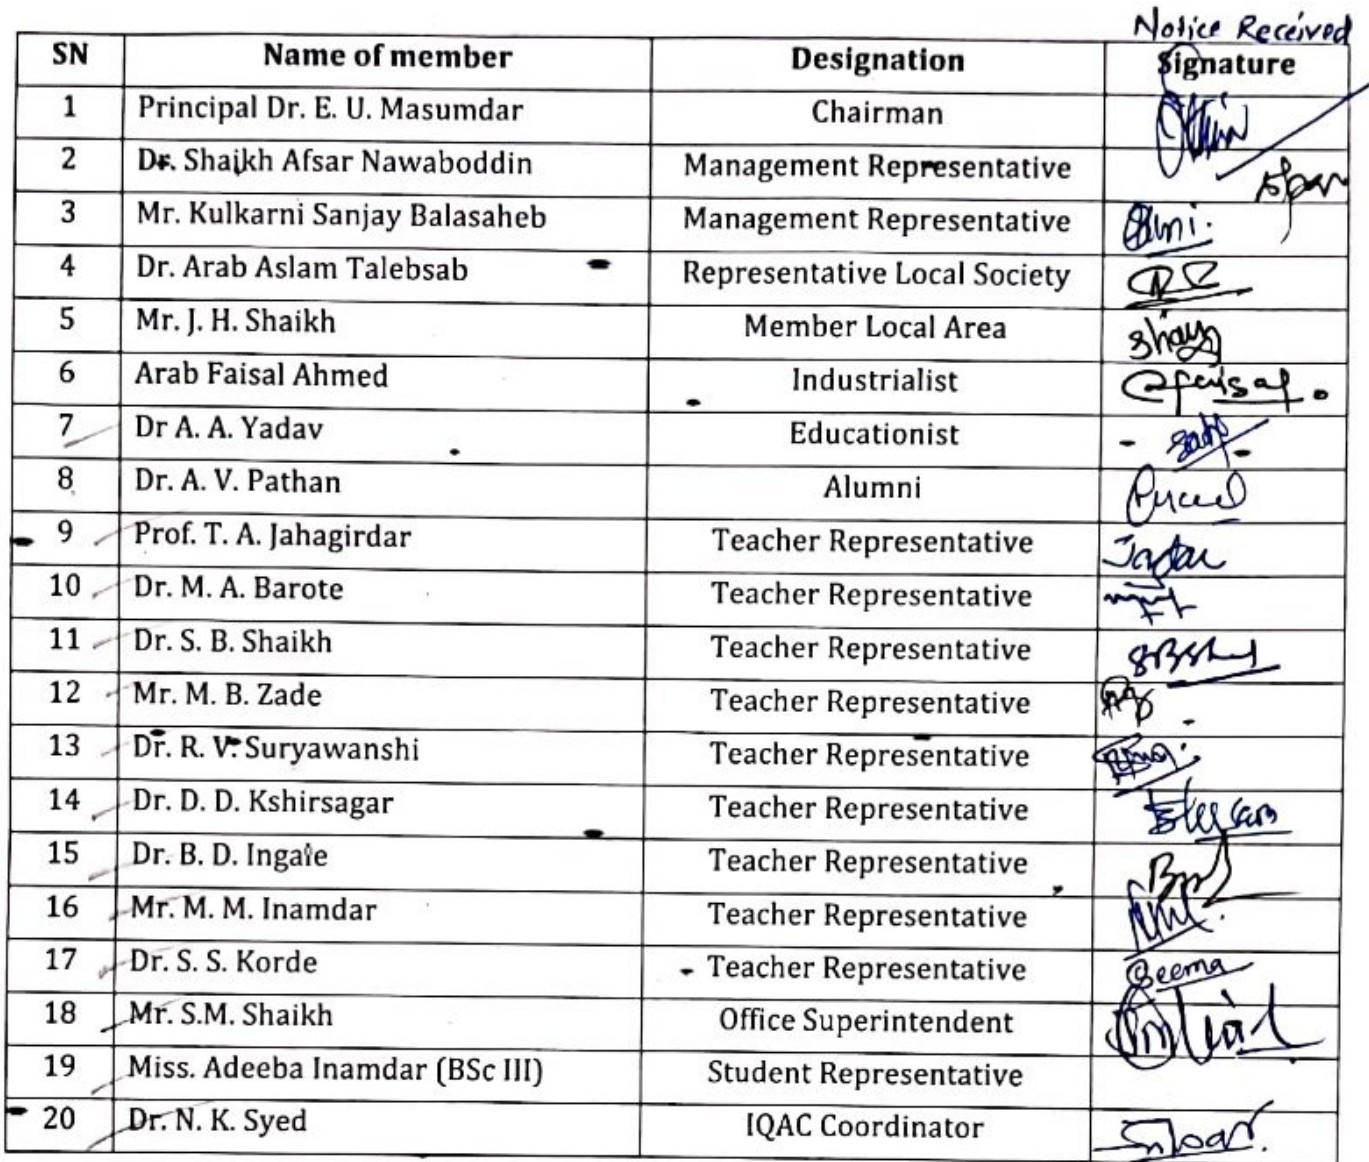 Notice Received
SN Name of member Designation Signature
1 Principal Dr. E. U. Masumdar Chairman
2 Dr. Shaikh Afsar Nawaboddin Management Representative
3 Mr. Kulkarni Sanjay Balasaheb Management Representative
4 Dr. Arab Aslam Talebsab Representative Local Society
5 Mr. J. H. Shaikh Member Local Area
6 Arab Faisal Ahmed Industrialist
7 Dr A. A. Yadav Educationist
8 Dr. A. V. Pathan Alumni
9 Prof. T. A. Jahagirdar Teacher Representative
10 Dr. M. A. Barote Teacher Representative
11 Dr. S. B. Shaikh Teacher Representative
12 Mr. M. B. Zade Teacher Representative
13 Dr. R. V. Suryawanshi Teacher Representative
14 Dr. D. D. Kshirsagar Teacher Representative
15 Dr. B. D. Ingale Teacher Representative
16 Mr. M. M. Inamdar Teacher Representative
17 Dr. S. S. Korde Teacher Representative Seema
18 Mr. S.M. Shaikh Office Superintendent
19 Miss. Adeeba Inamdar (BSc III) Student Representative
20 Dr. N. K. Syed IQAC Coordinator